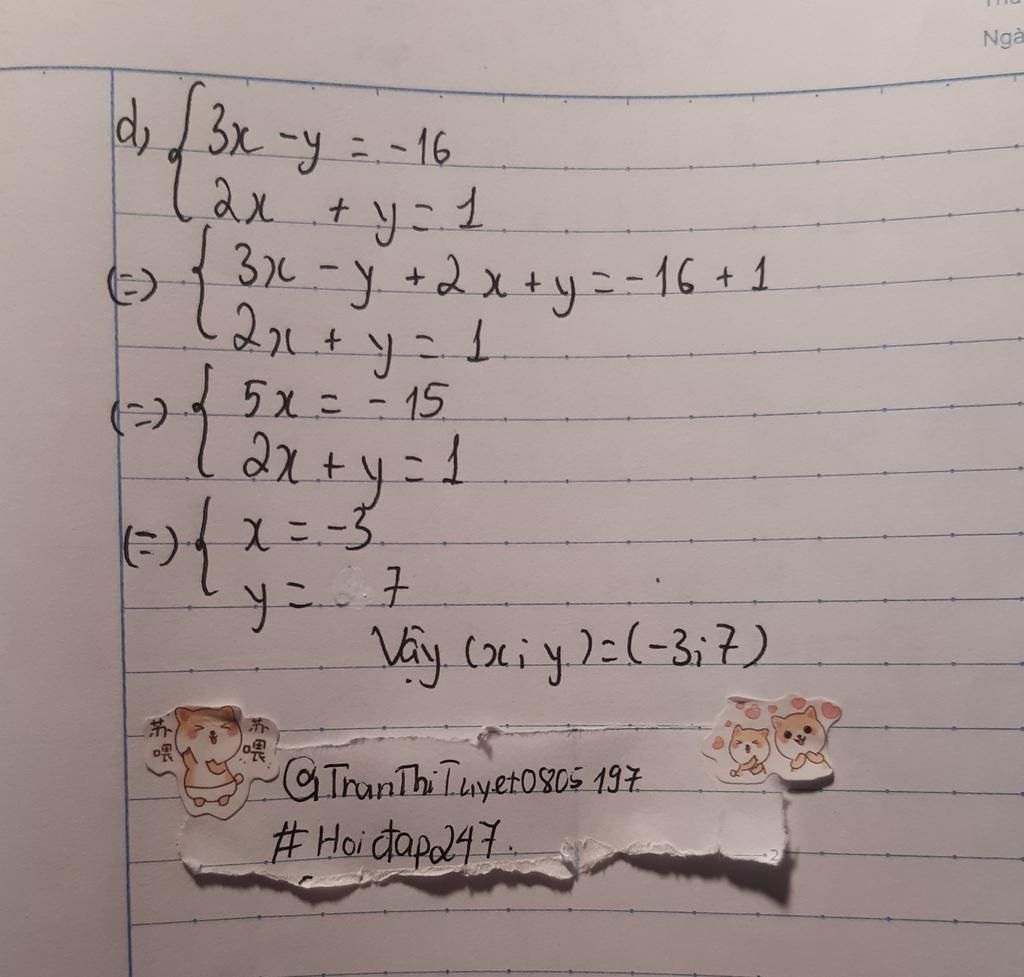 Ngà
d, { 3x - y = -16
2x + y = 1
(=) { 3x - y + 2x + y = -16 + 1
2x + y = 1
(=) { 5x = -15
2x + y = 1
(=) { x = -3
y = 7
Vậy (x; y) = (-3; 7)
苏 苏
喂 喂
@TranThiTuyet0805197
#Hoidap247.